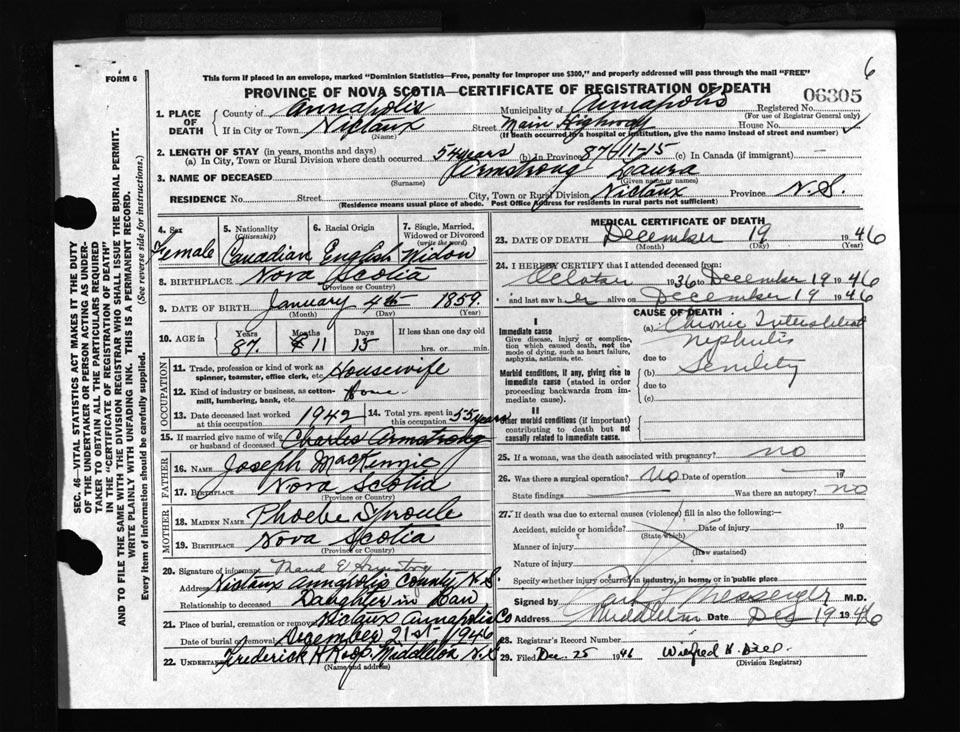 6
FORM 6
This form if placed in an envelope, marked "Dominion Statistics—Free, penalty for improper use $300," and properly addressed will pass through the mail "FREE"
PROVINCE OF NOVA SCOTIA—CERTIFICATE OF REGISTRATION OF DEATH
06305
1. PLACE OF DEATH
County of Annapolis Municipality of Annapolis Registered No.
(For use of Registrar General only)
If in City or Town Nictaux Street Main Highway House No.
(Name) (If death occurred in a hospital or institution, give the name instead of street and number)
2. LENGTH OF STAY (in years, months and days)
(a) In City, Town or Rural Division where death occurred 54 years (b) in Province 87-11-15 (c) In Canada (if immigrant)
3. NAME OF DECEASED Armstrong Laura
(Surname) (Given name or names)
RESIDENCE No. Street City, Town or Rural Division Nictaux Province N.S.
(Residence means usual place of abode. Post Office Address for residents in rural parts not sufficient)
SEC. 46—VITAL STATISTICS ACT MAKES IT THE DUTY
OF THE UNDERTAKER OR PERSON ACTING AS UNDER-
TAKER TO OBTAIN ALL THE PARTICULARS REQUIRED
IN THE "CERTIFICATE OF REGISTRATION OF DEATH"
AND TO FILE THE SAME WITH THE DIVISION REGISTRAR WHO SHALL ISSUE THE BURIAL PERMIT.
WRITE PLAINLY WITH UNFADING INK. THIS IS A PERMANENT RECORD.
Every item of information should be carefully supplied. (See reverse side for instructions.)
4. Sex Female
5. Nationality (Citizenship) Canadian
6. Racial Origin English
7. Single, Married, Widowed or Divorced (write the word) Widow
8. BIRTHPLACE Nova Scotia
(Province or Country)
9. DATE OF BIRTH January 4th 1859
(Month) (Day) (Year)
10. AGE in Years 87 Months 11 Days 15 If less than one day old hrs. or min.
OCCUPATION
11. Trade, profession or kind of work as spinner, teamster, office clerk, etc. Housewife
12. Kind of industry or business, as cotton-mill, lumbering, bank, etc. Home
13. Date deceased last worked at this occupation 1942
14. Total yrs. spent in this occupation 55 years
15. If married give name of wife or husband of deceased Charles Armstrong
FATHER
16. NAME Joseph MacKennie
17. BIRTHPLACE Nova Scotia
(Province or Country)
MOTHER
18. MAIDEN NAME Phoebe Sproule
19. BIRTHPLACE Nova Scotia
(Province or Country)
20. Signature of informant Maud E Armstrong
Address Nictaux Annapolis County N.S.
Relationship to deceased Daughter in Law
21. Place of burial, cremation or removal Nictaux Annapolis Co
Date of burial or removal December 21st 1946
22. UNDERTAKER Frederick H Roop Middleton N.S
(Name and address)
MEDICAL CERTIFICATE OF DEATH
23. DATE OF DEATH December 19 1946
(Month) (Day) (Year)
24. I HEREBY CERTIFY that I attended deceased from:
October 1936 to December 19 1946
and last saw her alive on December 19 1946
CAUSE OF DEATH
I
Immediate cause
Give disease, injury or complication which caused death, not the mode of dying, such as heart failure, asphyxia, asthenia, etc.
(a) Chronic Interstitial
Nephritis
due to
Morbid conditions, if any, giving rise to immediate cause (stated in order proceeding backwards from immediate cause).
(b) Senility
due to
(c)
II
Other morbid conditions (if important) contributing to death but not causally related to immediate cause.
25. If a woman, was the death associated with pregnancy? no
26. Was there a surgical operation? no Date of operation 19
State findings Was there an autopsy? no
27. If death was due to external causes (violence) fill in also the following:—
Accident, suicide or homicide? Date of injury 19
(State which)
Manner of injury
(How sustained)
Nature of injury
Specify whether injury occurred in industry, in home, or in public place
Signed by Messenger M.D.
Address Middleton Date Dec 19 1946
28. Registrar's Record Number
29. Filed Dec. 25 1946 Wilfred H.
(Division Registrar)